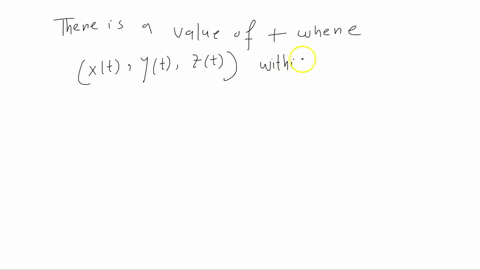 There is a value of t where
(x(t), y(t), z(t)) withi